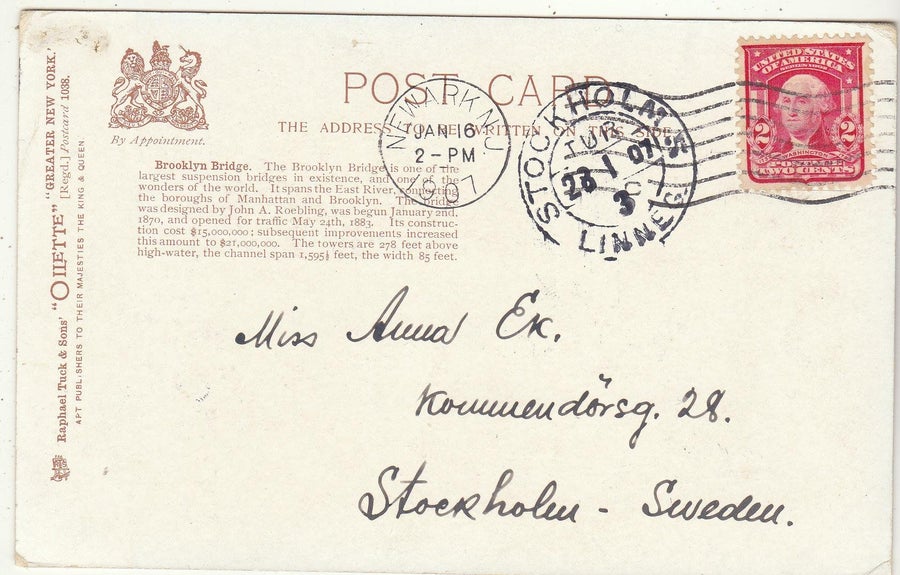 Raphael Tuck & Sons' "OILETTE" "GREATER NEW YORK."
[Regd.] Postcard 1038.
ART PUBLISHERS TO THEIR MAJESTIES THE KING & QUEEN.
By Appointment.
POST CARD
THE ADDRESS TO BE WRITTEN ON THIS SIDE
NEWARK, N.J
JAN 16
2-PM
1907
STOCKHOLM
TUR
28 1 07
3
LINNEG
UNITED STATES
OF AMERICA
2 2
WASHINGTON
POSTAGE
TWO CENTS
Brooklyn Bridge. The Brooklyn Bridge is one of the
largest suspension bridges in existence, and one of the
wonders of the world. It spans the East River, connecting
the boroughs of Manhattan and Brooklyn. The bridge
was designed by John A. Roebling, was begun January 2nd.
1870, and opened for traffic May 24th, 1883. Its construc-
tion cost $15,000.000: subsequent improvements increased
this amount to $21,000,000. The towers are 278 feet above
high-water, the channel span 1,595½ feet, the width 85 feet.
Miss Anna Ek.
Kommendörsg. 28.
Stockholm - Sweden.